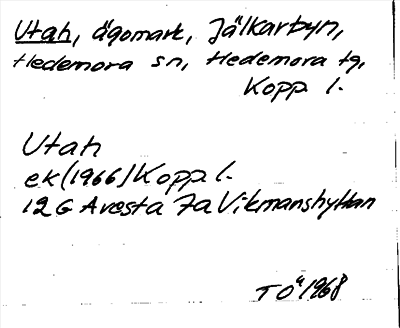 Utah, ägomark, Jälkarbyn,
Hedemora sn, Hedemora tg,
Kopp l.
Utah
ek (1966) Kopp l.
12 G Avesta 7a Vikmanshyttan
TÖ 1968